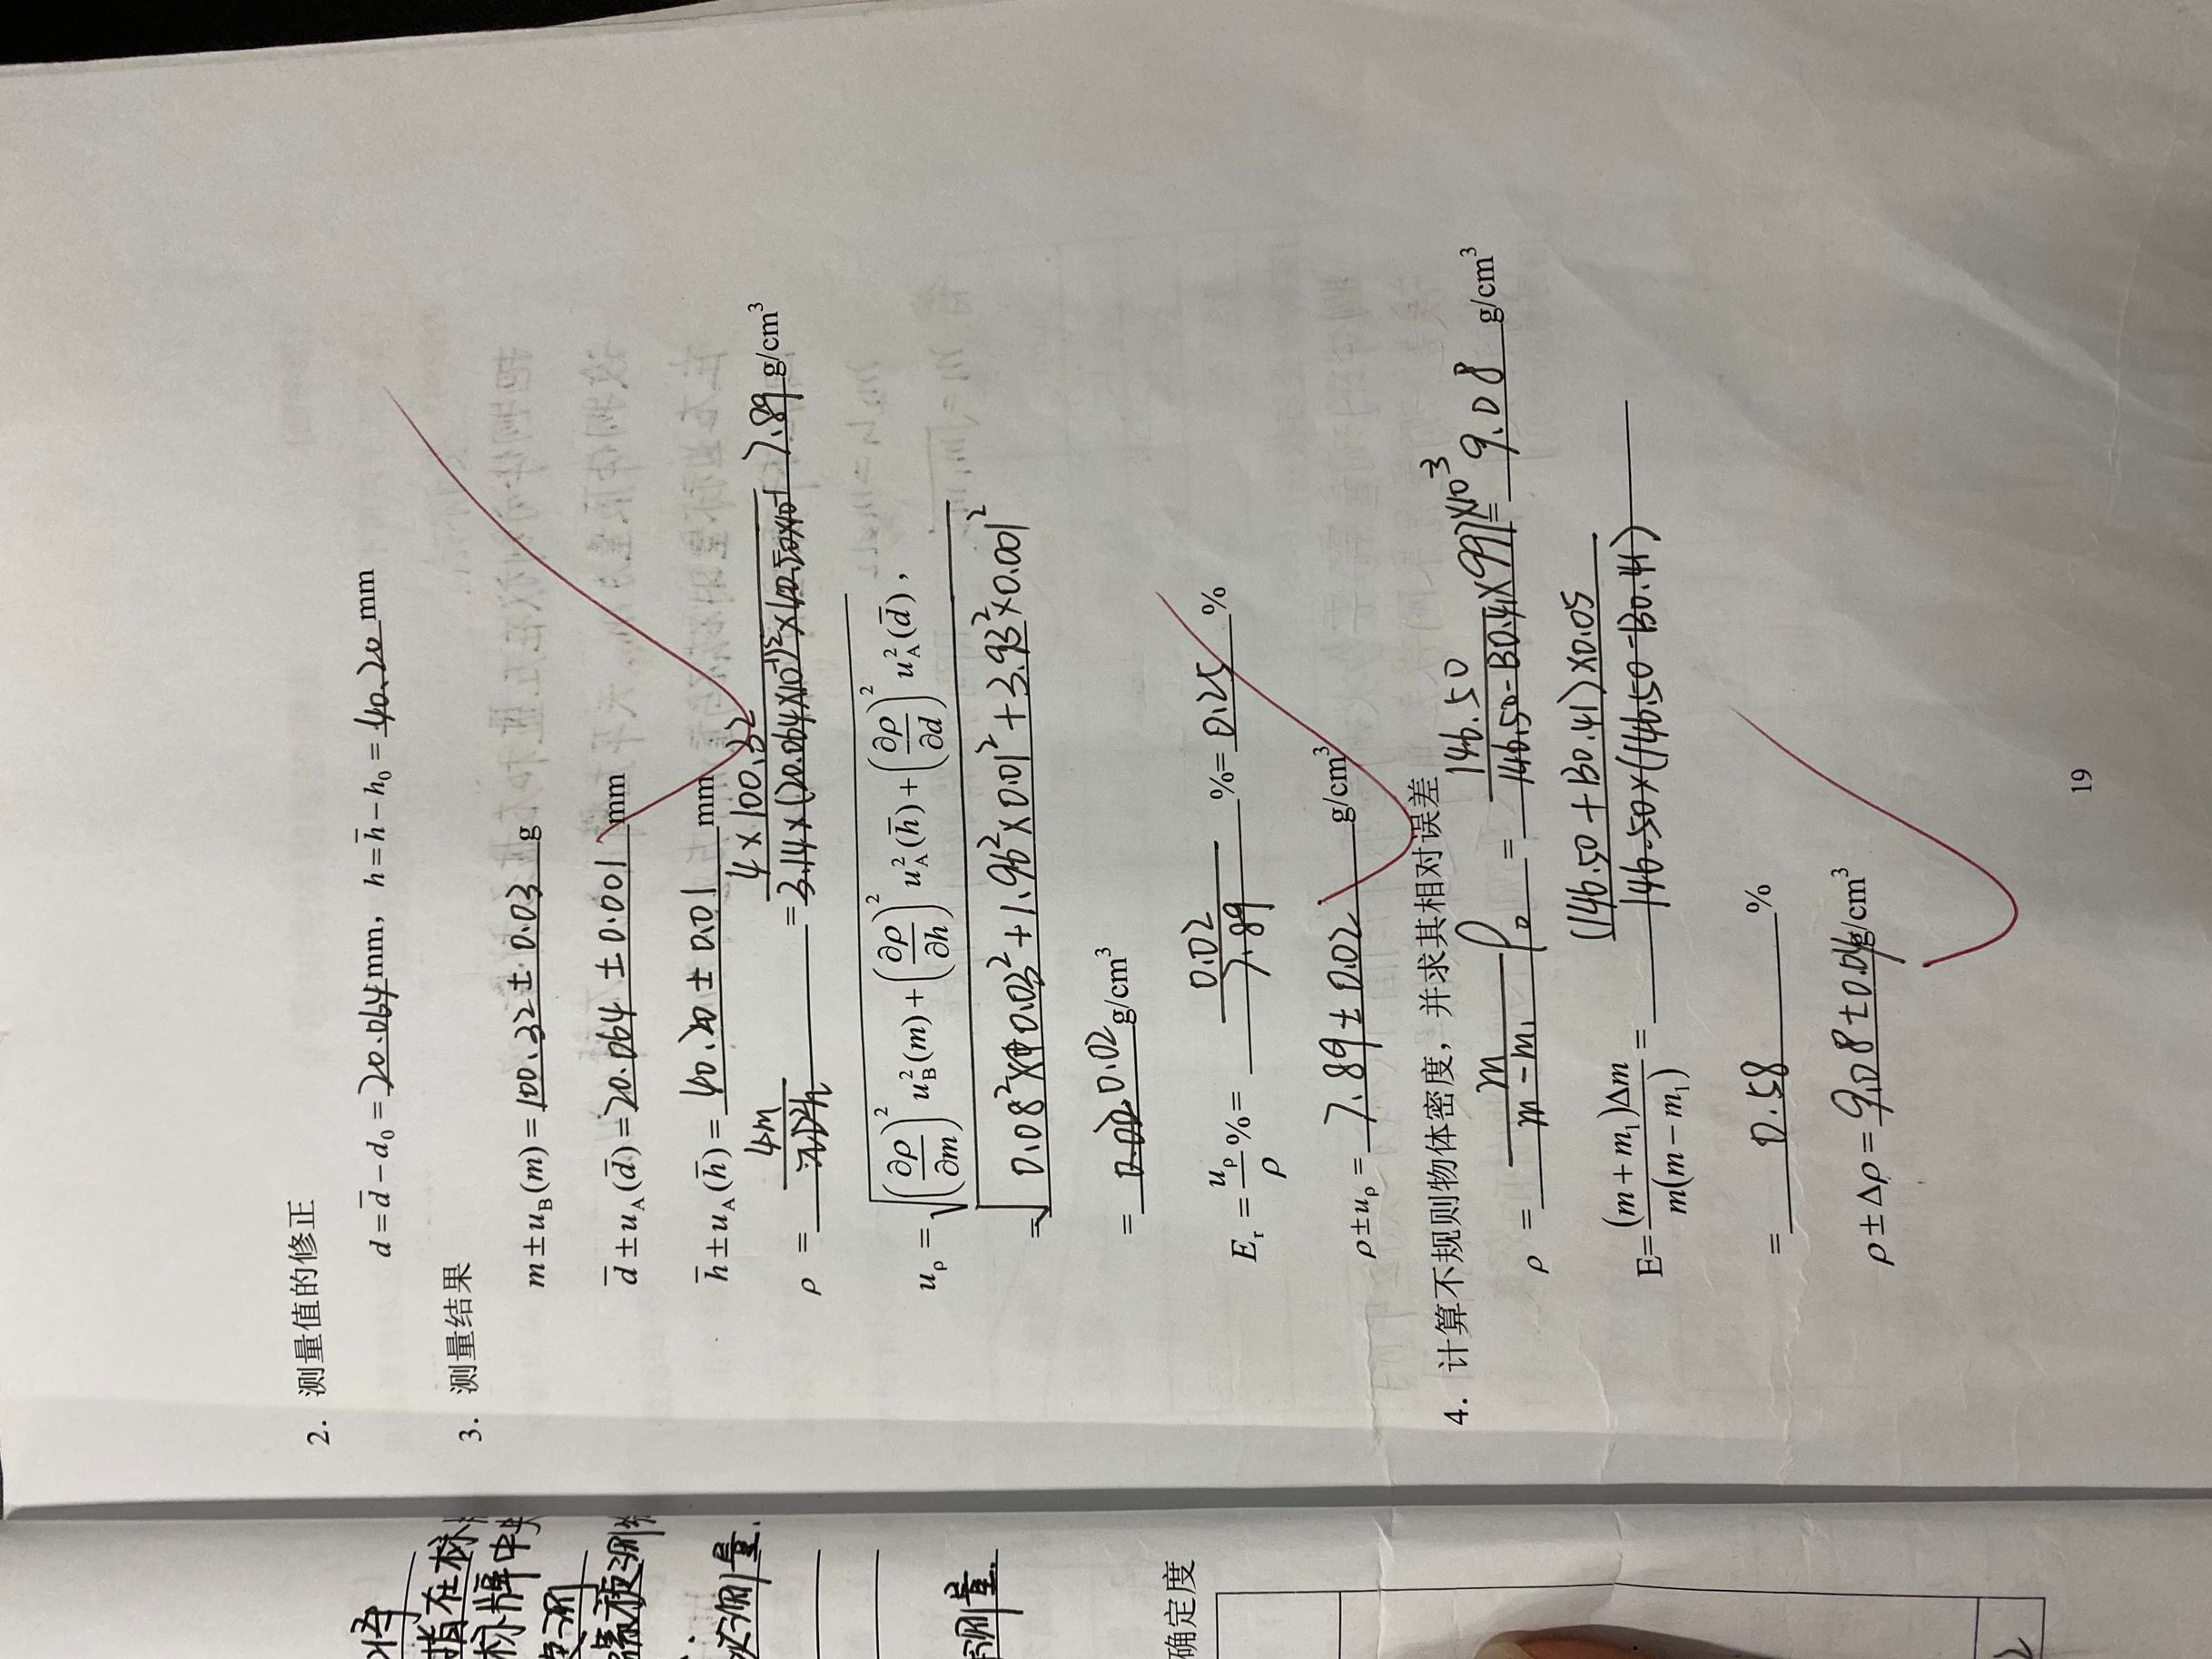 将
指在标
标牌中央
次测量.
测量.
确定度
2
2. 测量值的修正
d = d̄ − d₀ = 20.064 mm, h = h̄ − h₀ = 40.20 mm
3. 测量结果
m ± u_B(m) = 100.32 ± 0.03 g
d̄ ± u_A(d̄) = 20.064 ± 0.001 mm
h̄ ± u_A(h̄) = 40.20 ± 0.01 mm
ρ = 4m/πD²h = 4×100.32/3.14×(20.064×10⁻¹)²×40.20×10⁻¹ 7.89 g/cm³
u_ρ = √((∂ρ/∂m)² u_B²(m) + (∂ρ/∂h)² u_A²(h̄) + (∂ρ/∂d)² u_A²(d̄)),
= √(0.08²×0.03² + 1.96²×0.01² + 3.93²×0.001²)
= 0.02 g/cm³
E_r = u_ρ/ρ % = 0.02/7.89 % = 0.25 %
ρ ± u_ρ = 7.89 ± 0.02 g/cm³
4. 计算不规则物体密度，并求其相对误差
ρ = m/(m − m₁) ρ₀ = 146.50/(146.50 − 130.41) × 997×10³ = 9.08 g/cm³
E= (m + m₁)Δm/m(m − m₁) = (146.50 + 130.41)×0.05/146.50×(146.50 − 130.41)
= 0.58 %
ρ ± Δρ = 9.08 ± 0.04 g/cm³
19